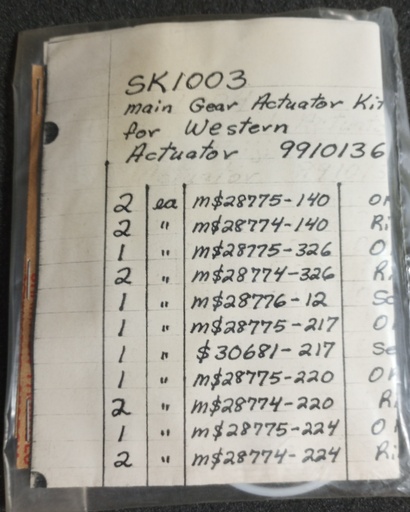 SK1003
main Gear Actuator Kit
for Western
Actuator 9910136
2 ea M$28775-140 O
2 " M$28774-140 Ri
1 " M$28775-326 O
2 " M$28774-326 R
1 " M$28776-12 Sc
1 " M$28775-217 O
1 " $30681-217 Se
1 " M$28775-220 O
2 " M$28774-220 R
1 " M$28775-224 O
2 " M$28774-224 Ri